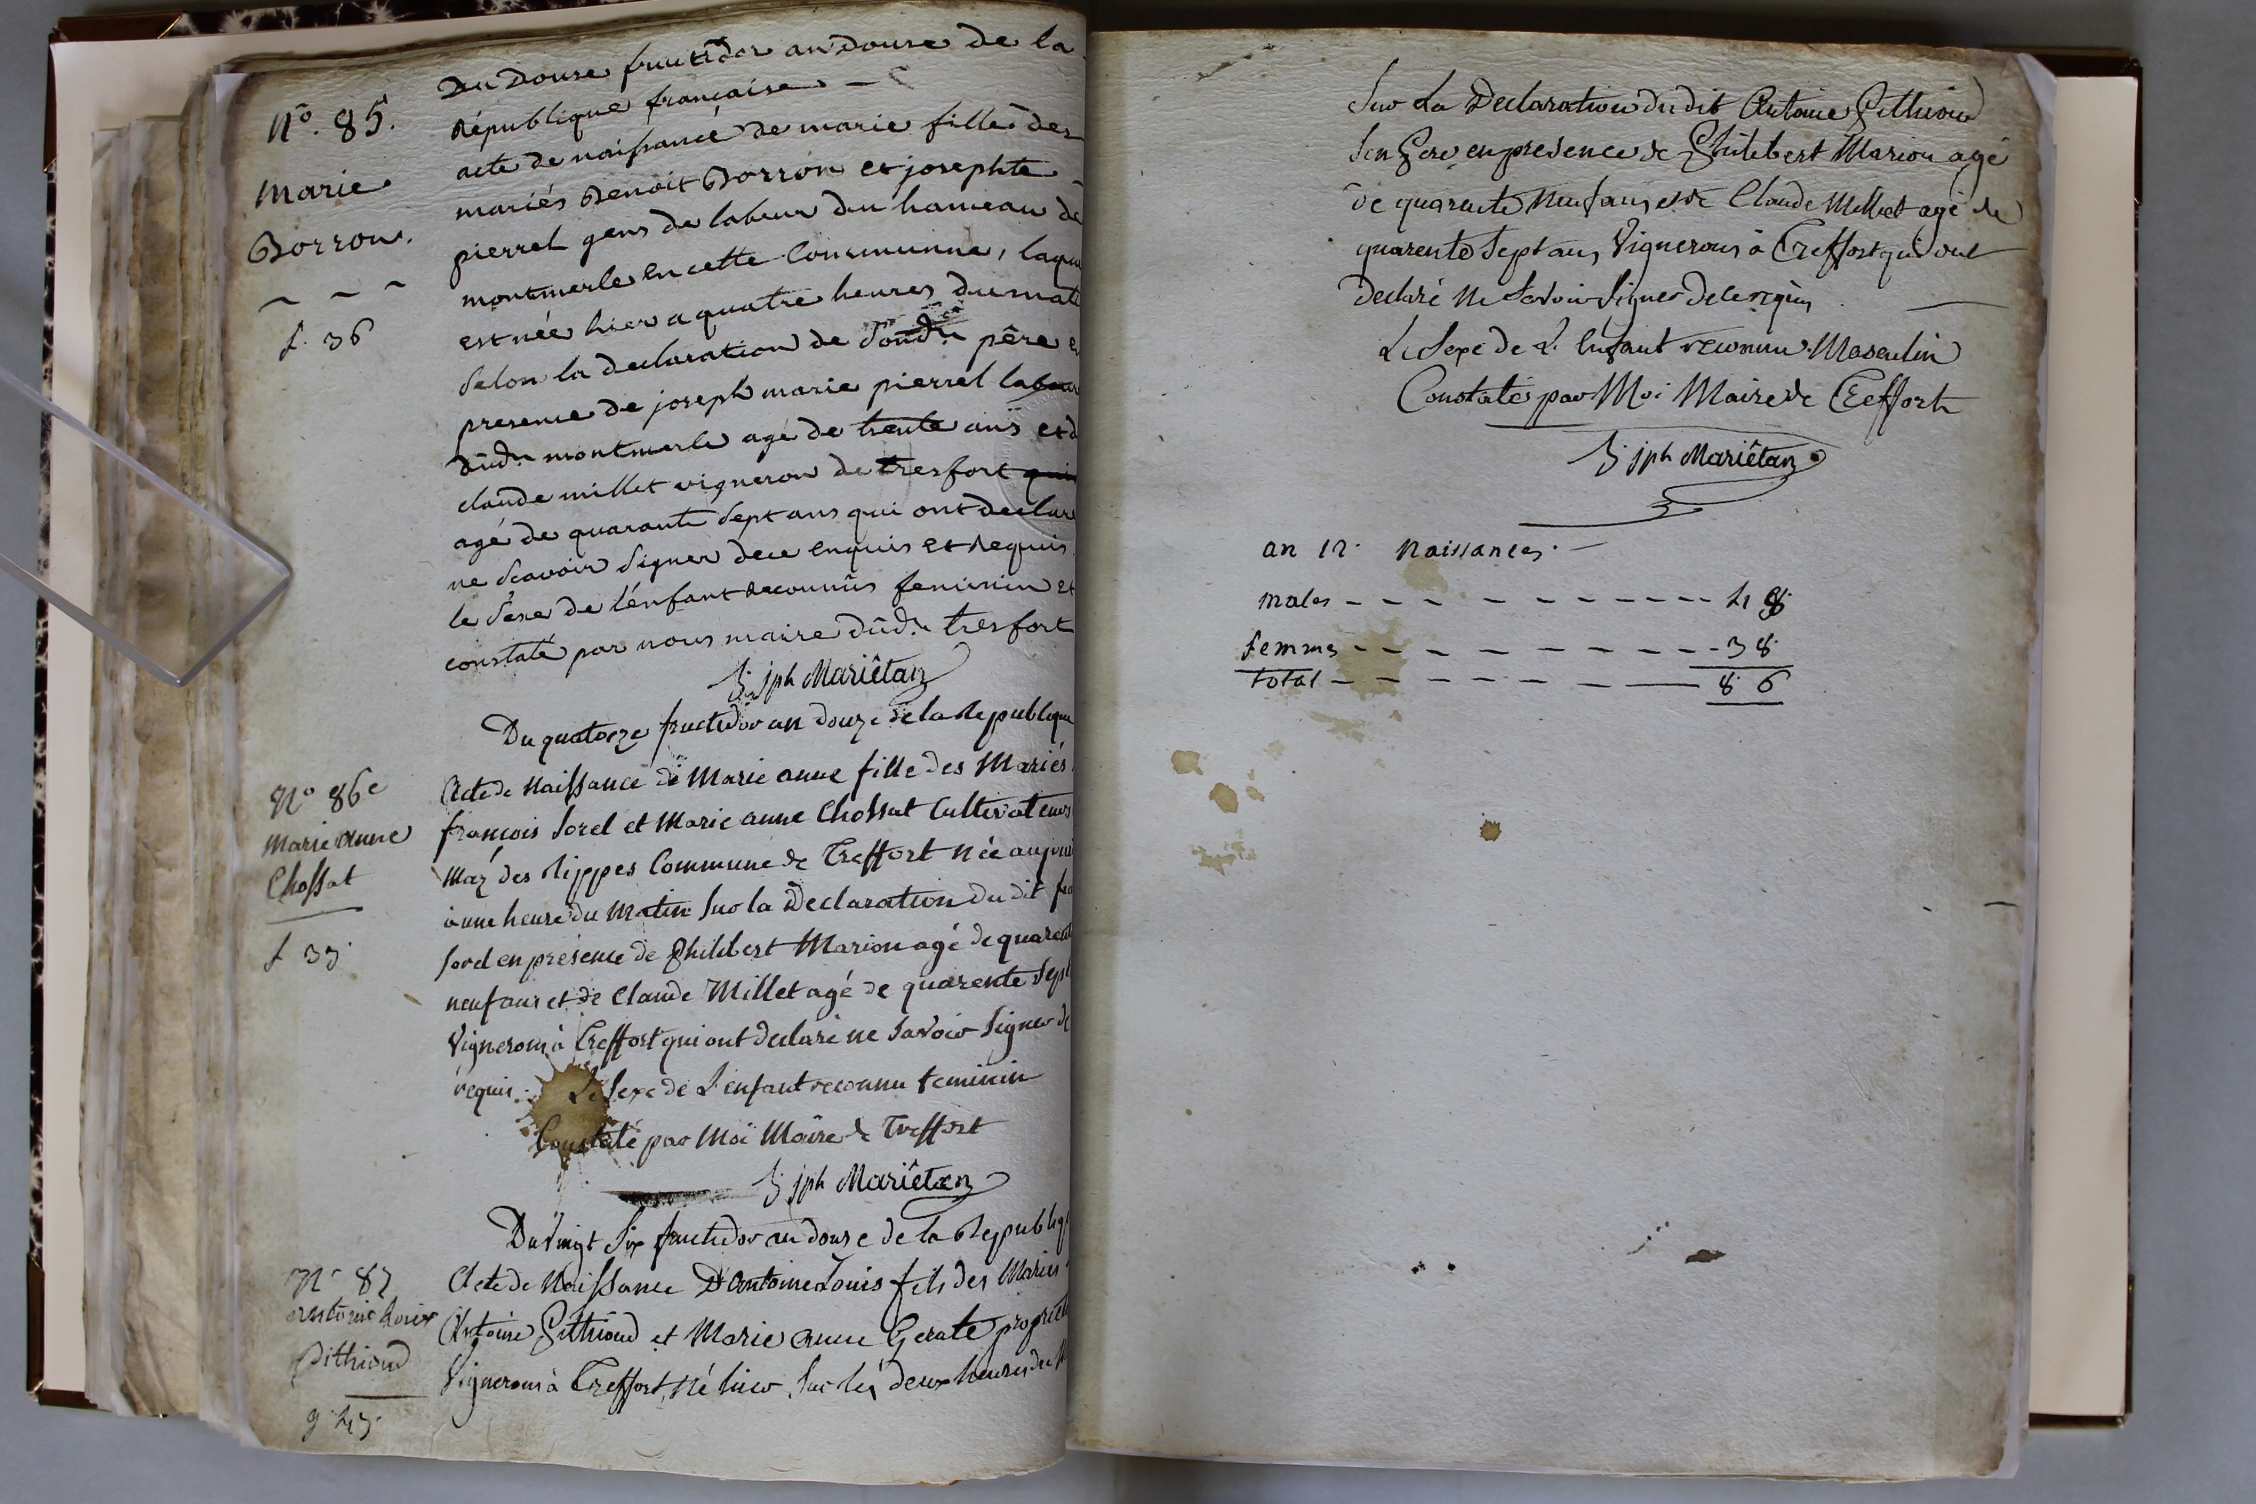 Du Douse fructidor an douse de la
République française
N°. 85.
Marie
Borron.
f. 36
acte de naissance de marie fille des
mariés Benoit Borron et josephte
pierrel gens de labeur du hameau de
montmerle en cette Communne, laque
est née hier a quatre heures du mati
selon la declaration de père e
presence de joseph marie pierrel
dud.t montmerle agé de trente ans et d
claude millet vigneron de tresfort
agé de quarante sept ans qui ont declare
ne scavoir signer de ce enquis et requis
le sexe de l'énfant reconnus feminin et
constaté par nous maire dud.t tresfort
jph Mariêtan
Du quatorze fructidor an douze de la Republique
N° 86e
Marie anne
Chossat
f 37.
Acte de Naissance de Marie anne fille des Mariés
françois Sorel et Marie anne Chossat Cultivateurs
Maz des Rippes Commune de Treffort Née aujour
à une heure du Matin Sur la Declaration du dit fra
Sorel en présence de Philibert Marion agé de quarente
neuf ans et de Claude Millet agé de quarente Sept
Vignerons à Treffort qui ont declaré ne Savoir Signer de
requis. Le Sexe de L'enfant reconnu feminin
Constaté par Moi Maire de Treffort
jph Mariêtan
Du Vingt Six fructidor an douze de la Republiq
N° 87
antoine Louis
Pithioud
g. 47.
Acte de Naissance D'Antoine Louis fils des Mariés
Antoine Pithioud et Marie Anne Gerate propriet
Vignerons à Treffort, Né hier Sur les deux heures du
Sur La Declaration du dit Antoine Pithioud
Son Pere en presence de Philibert Marion agé
de quarente Neuf ans et de Claude Millet agé de
quarente Sept ans Vignerons à Treffort qui ont
Declaré Ne Savoir Signer de ce requis
Le Sexe de L'Enfant reconnu Masculin
Constaté par Moi Maire de Treffort
jph Mariêtan
an 12. Naissances.
males 48
femmes 38
total 86